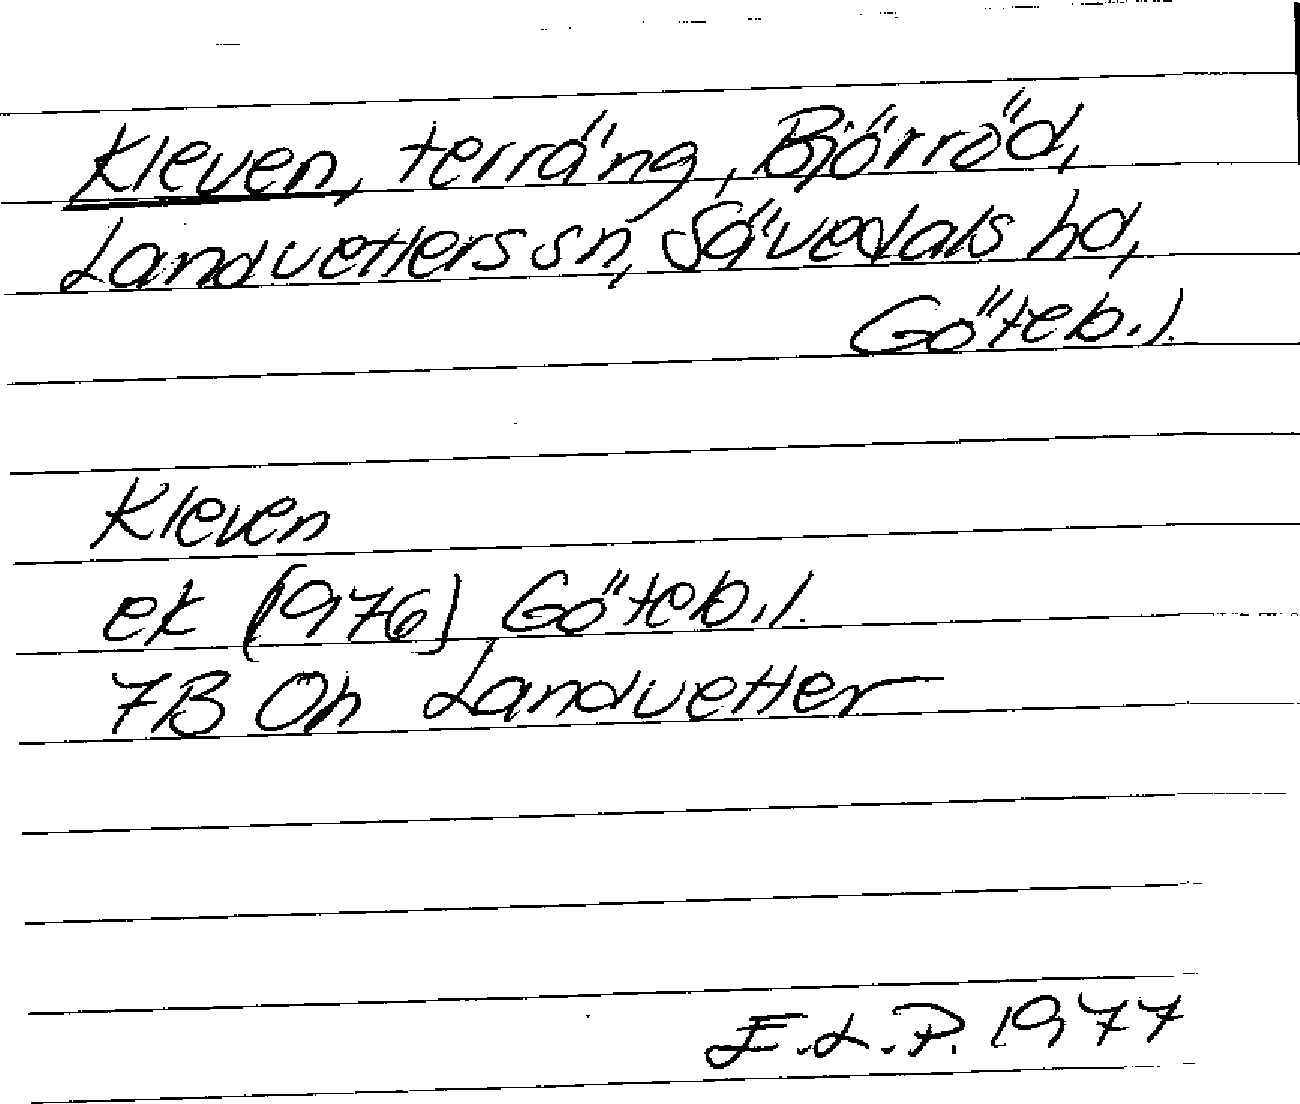 Kleven, terräng, Björröd,
Landvetters sn, Sävedals hd,
Göteb.l.
Kleven
ek [1976] Göteb.l.
7B Oh Landvetter
E.L.P. 1977